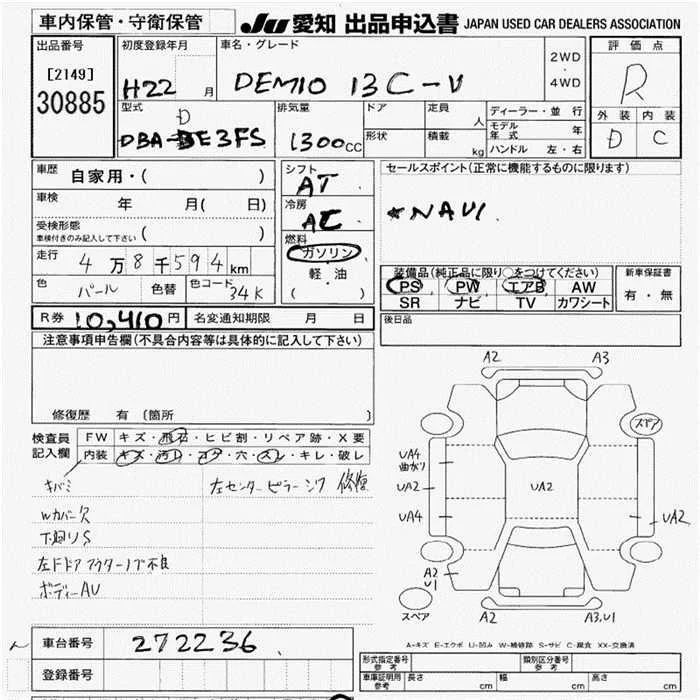 車内保管・守衛保管
JU 愛知 出品申込書 JAPAN USED CAR DEALERS ASSOCIATION
出品番号
[2149]
30885
初度登録年月
H22 月
車名・グレード
DEMIO 13C-V
2WD
・
4WD
評価点
R
外装 内装
D C
型式
D
DBA-DE3FS
排気量
1300cc
ドア
定員
人
形状
積載
kg
ディーラー・並 行
モデル年式 年
ハンドル 左・右
車歴
自家用・( )
車検
年 月( 日)
受検形態
車検付きのみ記入して下さい ( )
走行
4万8千594km
色
パール
色替
色コード
34K
シフト
AT
冷房
AC
燃料
ガソリン
軽・油
( )
セールスポイント(正常に機能するものに限ります)
★NAVI.
装備品(純正品に限り○をつけてください)
PS PW エアB AW
SR ナビ TV カワシート
新車保証書
有・無
R券 10,410円
名変通知期限 月 日
後日品
注意事項申告欄(不具合内容等は具体的に記入して下さい)
修復歴 有〔箇所 〕
検査員記入欄
FW キズ・飛石・ヒビ割・リペア跡・X要
内装 キズ・汚レ・コゲ・穴・スレ・キレ・破レ
キバミ
左センターピラーシワ 修復
Wカバー欠
下廻りS
左Fドアアウターノブ不良
ボディーAU
A2 A3
スペア
UA4
曲がり
UA2
UA4
UA2
UA2
A2
U1
スペア
A2 A3,U1
A-キズ E-エクボ U-凹み W-補修跡 S-サビ C-腐食 XX-交換済
車台番号 272236
登録番号
形式指定番号
参考
類別区分番号
参考
車庫証明用
参考
長さ cm 幅 cm 高さ cm